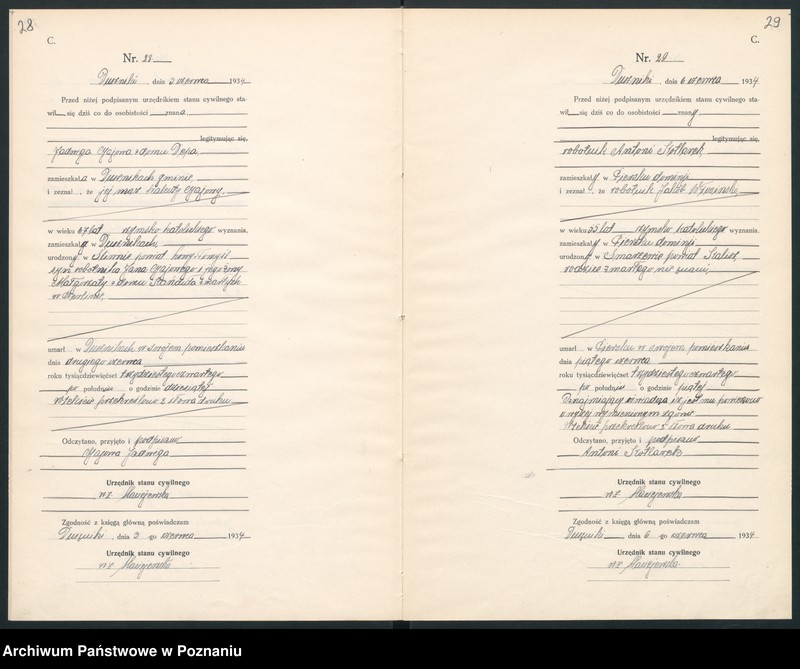 28
C.
Nr. 28
Duszniki, dnia 3 czerwca 1934
Przed niżej podpisanym urzędnikiem stanu cywilnego sta-
wił się dziś co do osobistości znana,
legitymując się,
Jadwiga
zamieszkała w Dusznikach gminie
i zeznał, że jej mąż Walenty
w wieku 67 lat rzymsko katolickiego wyznania,
zamieszkały w Dusznikach
urodzony w powiat Nowy Tomyśl
syn robotnika Jana i jego żony
Małgorzaty z domu zmarłych
w
umarł w Dusznikach w swojem pomieszkaniu
dnia drugiego czerwca
roku tysiącdziewięćset trzydziestegoczwartego
po południu o godzinie dziesiątej
W tekście przekreślono 2 słowa druku
Odczytano, przyjęto i podpisano
Jadwiga
Urzędnik stanu cywilnego
wz.
Zgodność z księgą główną poświadczam
Duszniki, dnia 3 -go czerwca 1934
Urzędnik stanu cywilnego
wz.
29
C.
Nr. 29
Duszniki, dnia 6 czerwca 1934
Przed niżej podpisanym urzędnikiem stanu cywilnego sta-
wił się dziś co do osobistości znany
legitymując się,
robotnik Antoni Kotlarek
zamieszkały w dominji
i zeznał, że robotnik Jakób
w wieku 55 lat rzymsko katolickiego wyznania,
zamieszkały w dominji
urodzony w powiat Kalisz
rodzice zmarłego nie znani
umarł w w swojem pomieszkaniu
dnia piątego czerwca
roku tysiącdziewięćset trzydziestegoczwartego
po południu o godzinie piątej
Oznajmiający oświadcza iż jest mu
o wyżej wymienionym zgonie
W tekście przekreślono 2 słowa druku
Odczytano, przyjęto i podpisano
Antoni Kotlarek
Urzędnik stanu cywilnego
wz.
Zgodność z księgą główną poświadczam
Duszniki, dnia 6 -go czerwca 1934
Urzędnik stanu cywilnego
wz.
Archiwum Państwowe w Poznaniu